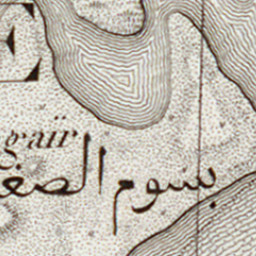 E
gaïr
بسوم الصغ